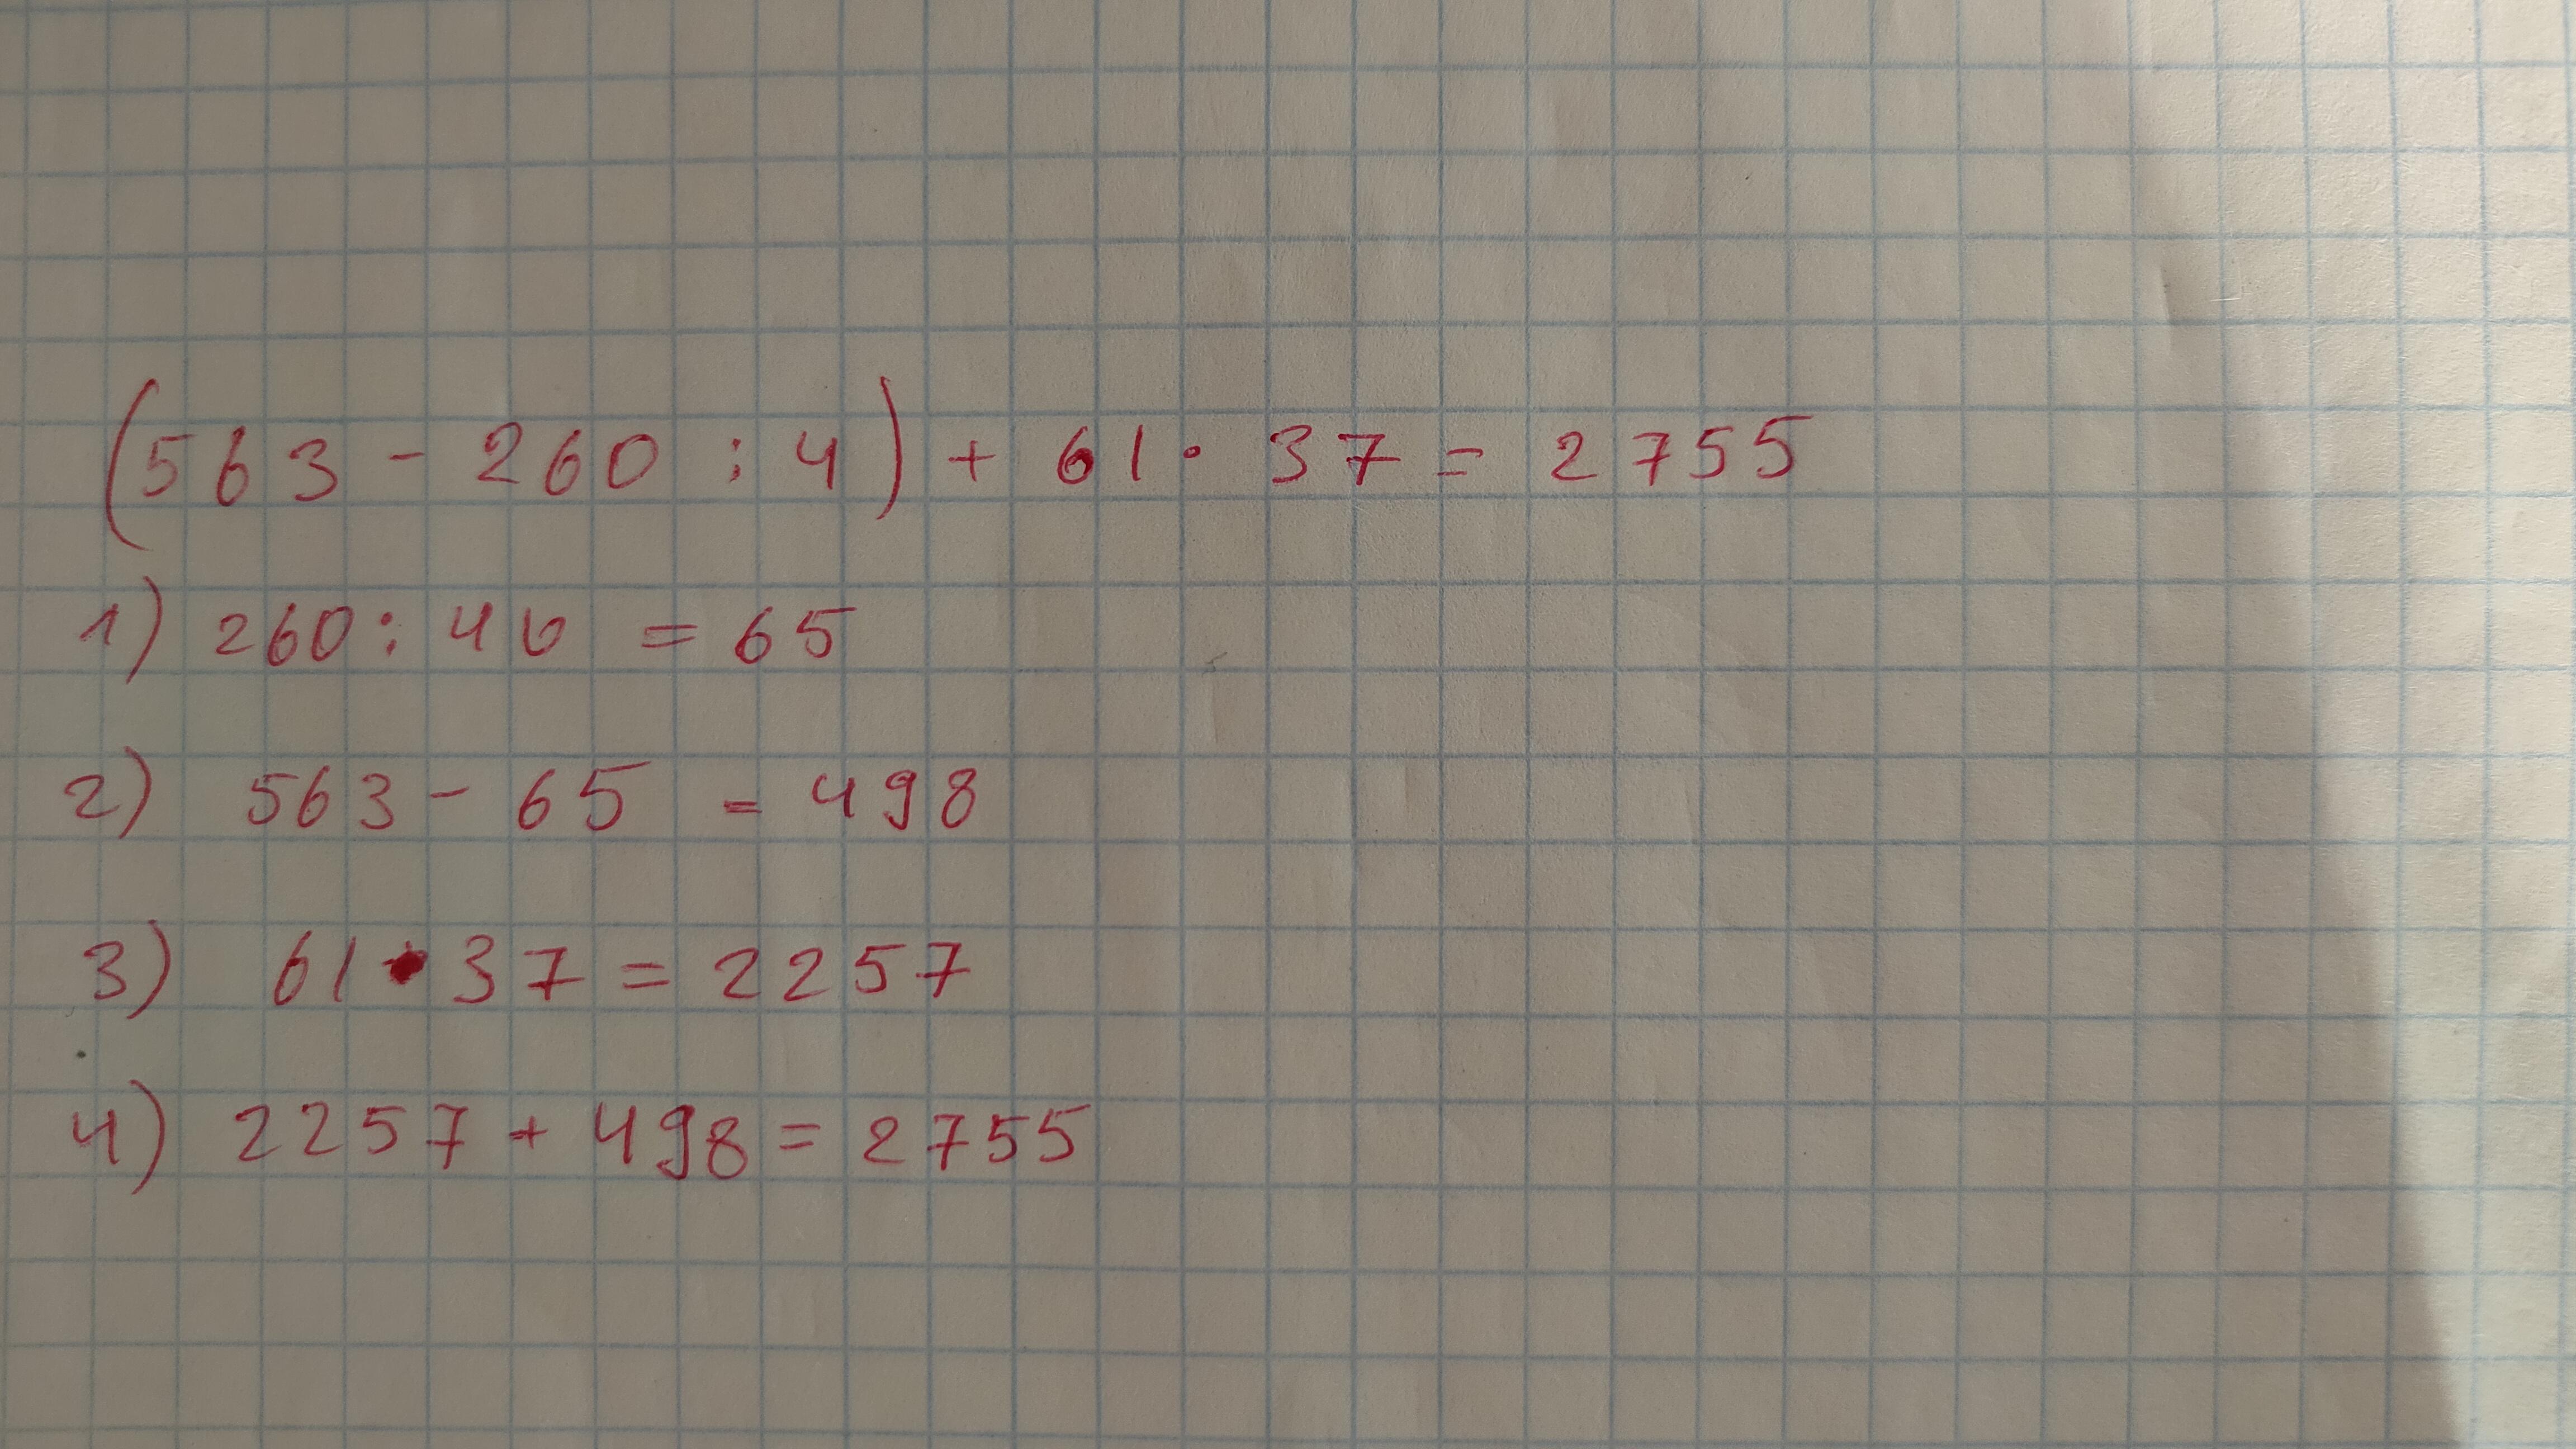 (563 - 260 : 4) + 61 · 37 = 2755
1) 260 : 40 = 65
2) 563 - 65 = 498
3) 61 · 37 = 2257
4) 2257 + 498 = 2755